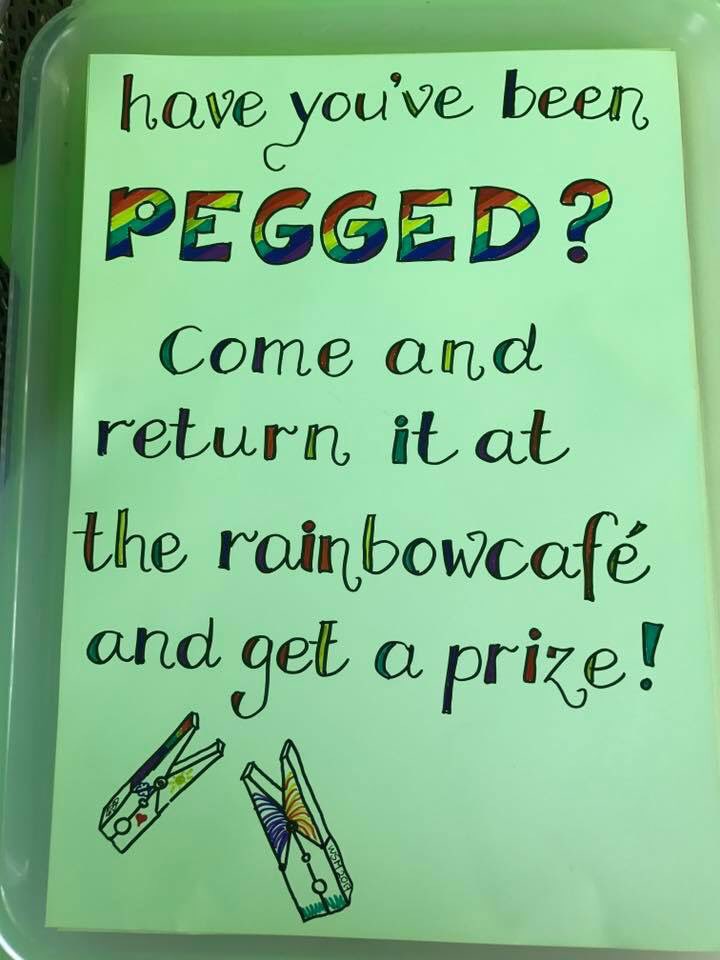 have you've been
PEGGED?
Come and
return it at
the rainbowcafé
and get a prize!